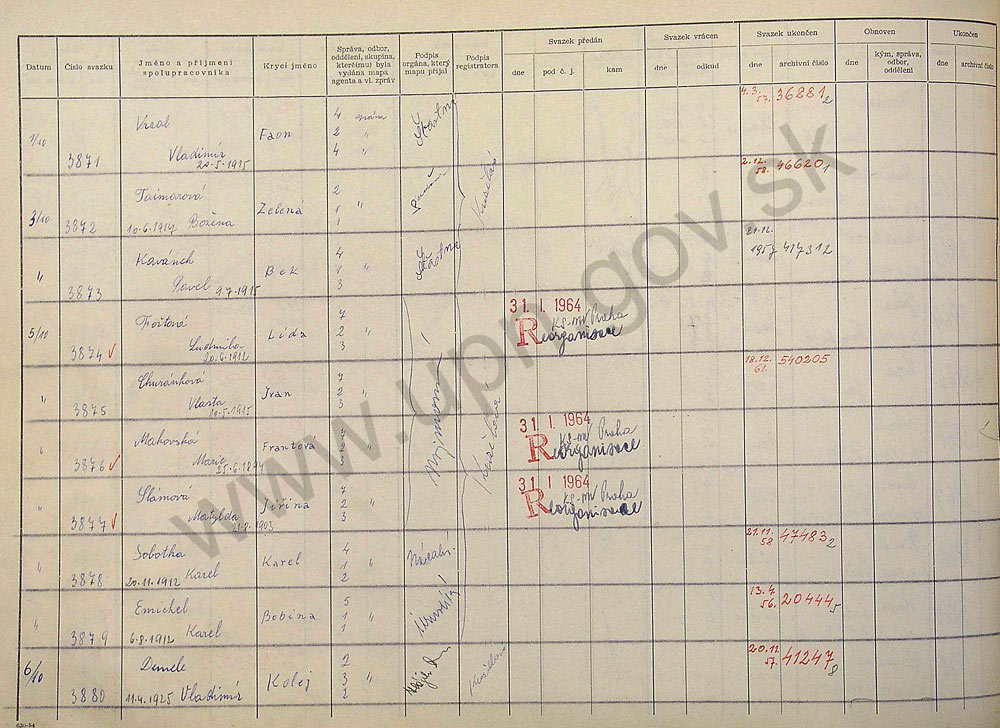 Datum
Číslo svazku
Jméno a příjmení
spolupracovníka
Krycí jméno
Správa, odbor,
oddělení, skupina,
které(mu) byla
vydána mapa
agenta a vl. zpráv
Podpis
orgána, který
mapu přijal
Podpis
registrátora
Svazek předán
dne
pod č. j.
kam
Svazek vrácen
dne
odkud
Svazek ukončen
dne
archivní číslo
Obnoven
dne
kým, správa,
odbor,
oddělení
Ukončen
dne
archivní číslo
1/10
3871
Vladimír
20.5.1915
Faon
4 správa
2 "
4 "
4.3.
57.
36881/2
3/10
3872
Tajmarová
10.6.1914 Božena
Zelená
2
1 "
1
2.12.
58.
46620/1
"
3873
Pavel 9.7.1915
Bek
4
1 "
3
21.12.
1957
41731/2
5/10
3874 ✓
Ludmila
20.6.1912
Lída
7
2 "
3
31. I. 1964
KS-MV Praha
Reorganisace
"
3875
Vlasta
10.5.1915
Ivan
7
2 "
3
18.12.
61.
540205
"
3876 ✓
Makovská
Marie
25.6.1894
Frantova
31. I. 1964
KS-MV Praha
Reorganisace
"
3877 ✓
Slámová
Matylda
Jiřina
7
2 "
3
31. I. 1964
KS-MV Praha
Reorganisace
"
3878
Sobotka
20.11.1912 Karel
Karel
4
1 "
2
21.11.
58
47483/2
"
3879
Emichel
6.8.1912 Karel
Bobina
5
1 "
1
13.4.
56.
20444/5
6/10
3880
Demele
11.4.1925 Vladimír
Kolej
2
3 "
2
20.12.
57.
41247/8
www.upn.gov.sk